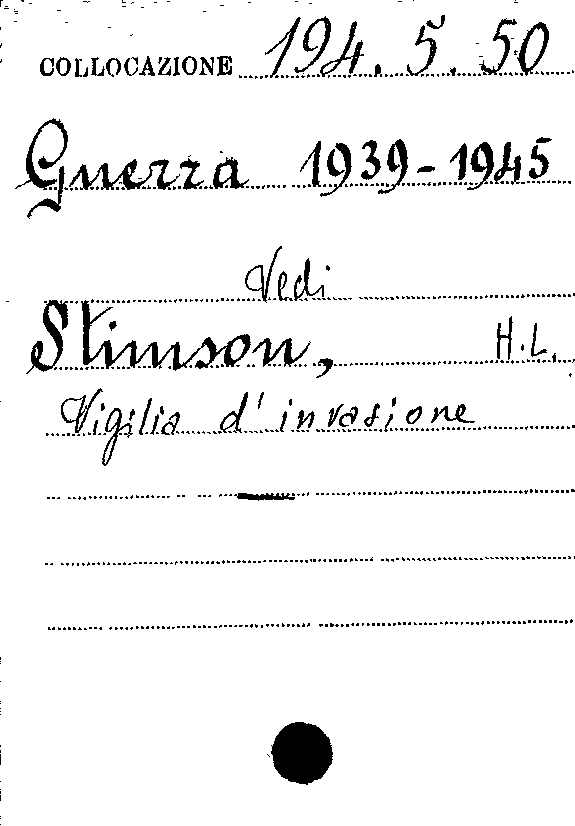 COLLOCAZIONE 194.5.50
Guerra 1939-1945
Vedi
Stimson, H.L.
Vigilia d'invasione